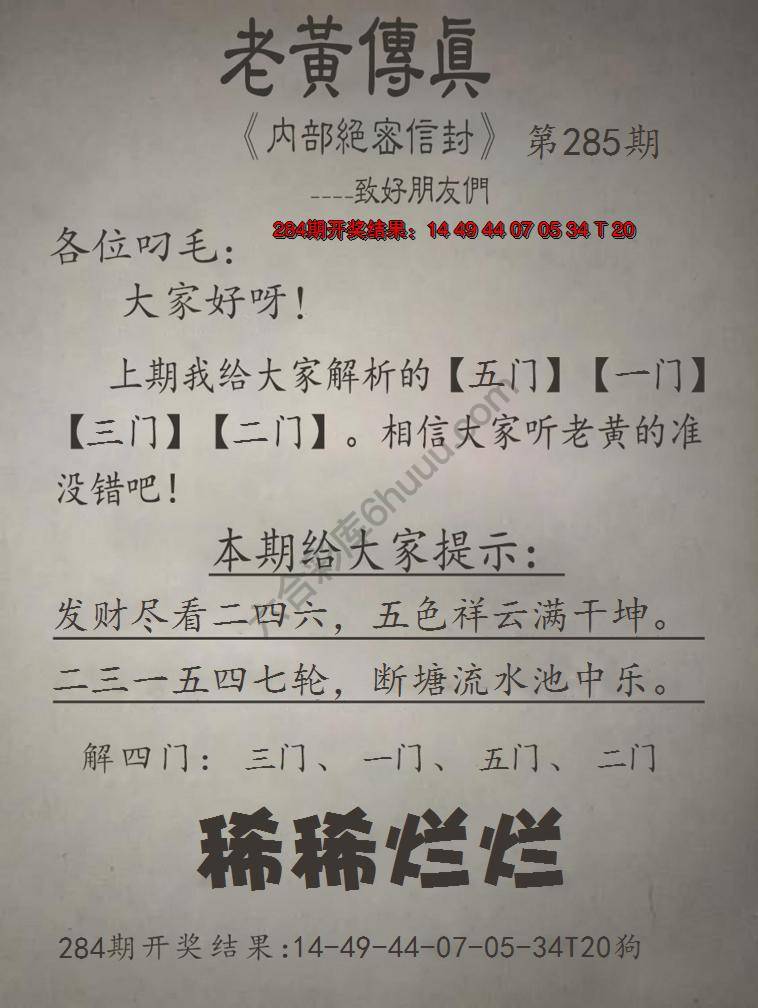 老黃傳眞
《内部絕密信封》 第285期
----致好朋友們
284期开奖结果：14 49 44 07 05 34 T 20
各位叼毛：
大家好呀！
上期我给大家解析的【五门】【一门】
【三门】【二门】。相信大家听老黄的准
没错吧！
本期给大家提示：
发财尽看二四六，五色祥云满干坤。
二三一五四七轮，断塘流水池中乐。
解四门：三门、一门、五门、二门
稀稀烂烂
284期开奖结果:14-49-44-07-05-34T20狗
六合彩库6huuu.com